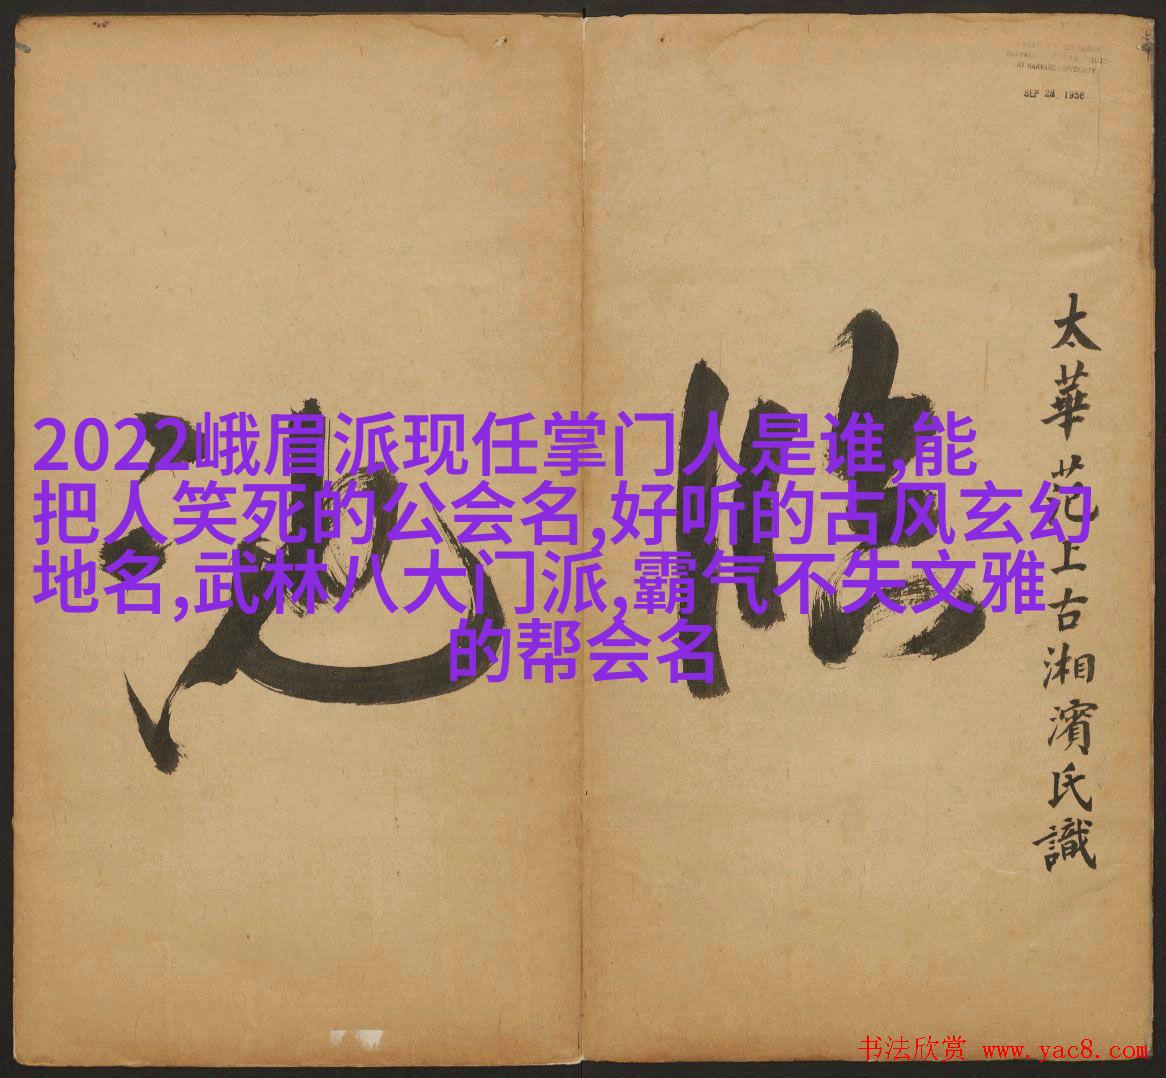 AT HARVARD UNIVERSITY
SEP 28 1956
2022峨眉派现任掌门人是谁,能
把人笑死的公会名,好听的古风玄幻
地名,武林八大门派,霸气不失文雅
的帮会名
太華苑上古湘濱氏識
书法欣赏 www.yac8.com